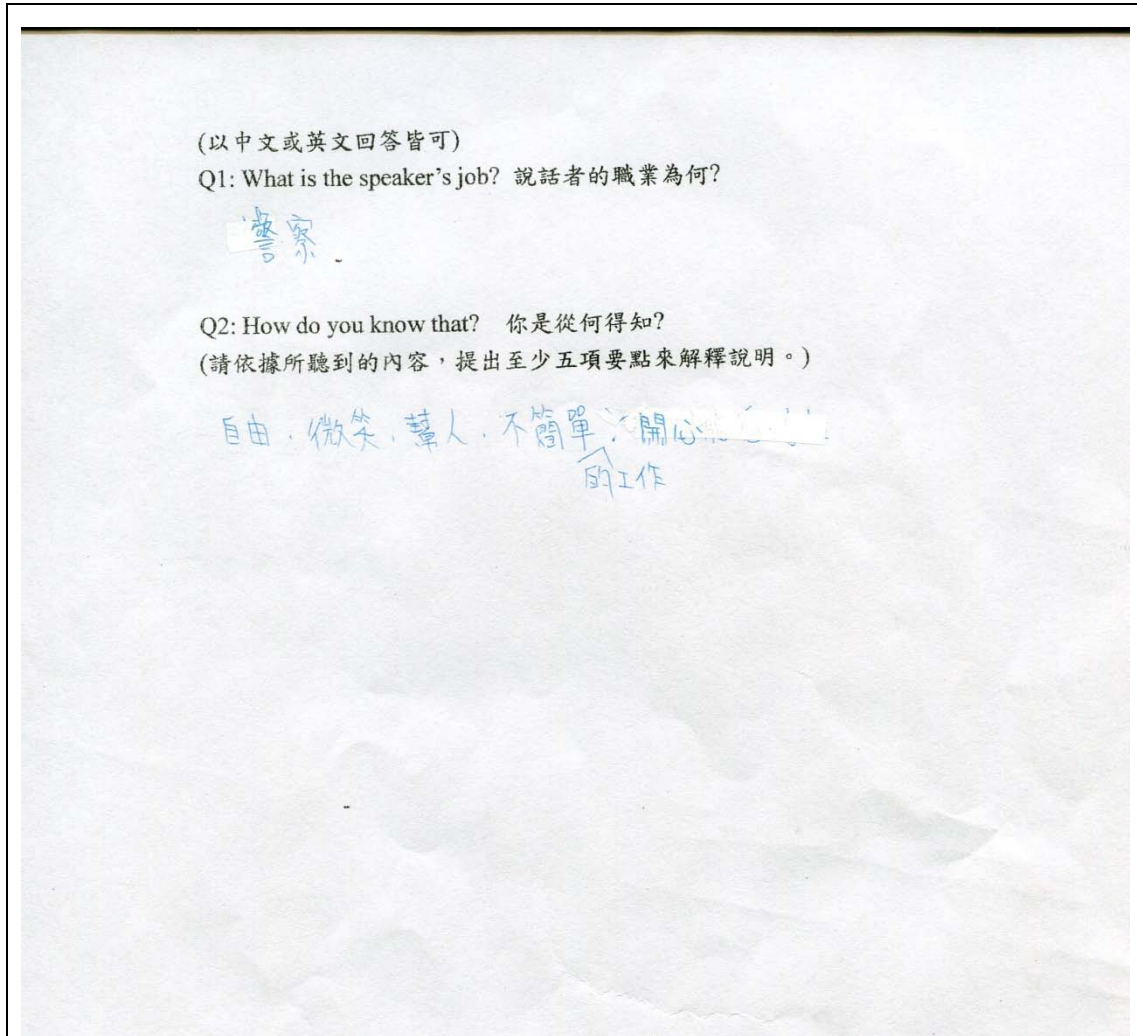 (以中文或英文回答皆可)
Q1: What is the speaker's job? 說話者的職業為何?
警察.
Q2: How do you know that? 你是從何得知?
(請依據所聽到的內容，提出至少五項要點來解釋說明。)
自由、微笑、幫人、不簡單、開心
的工作